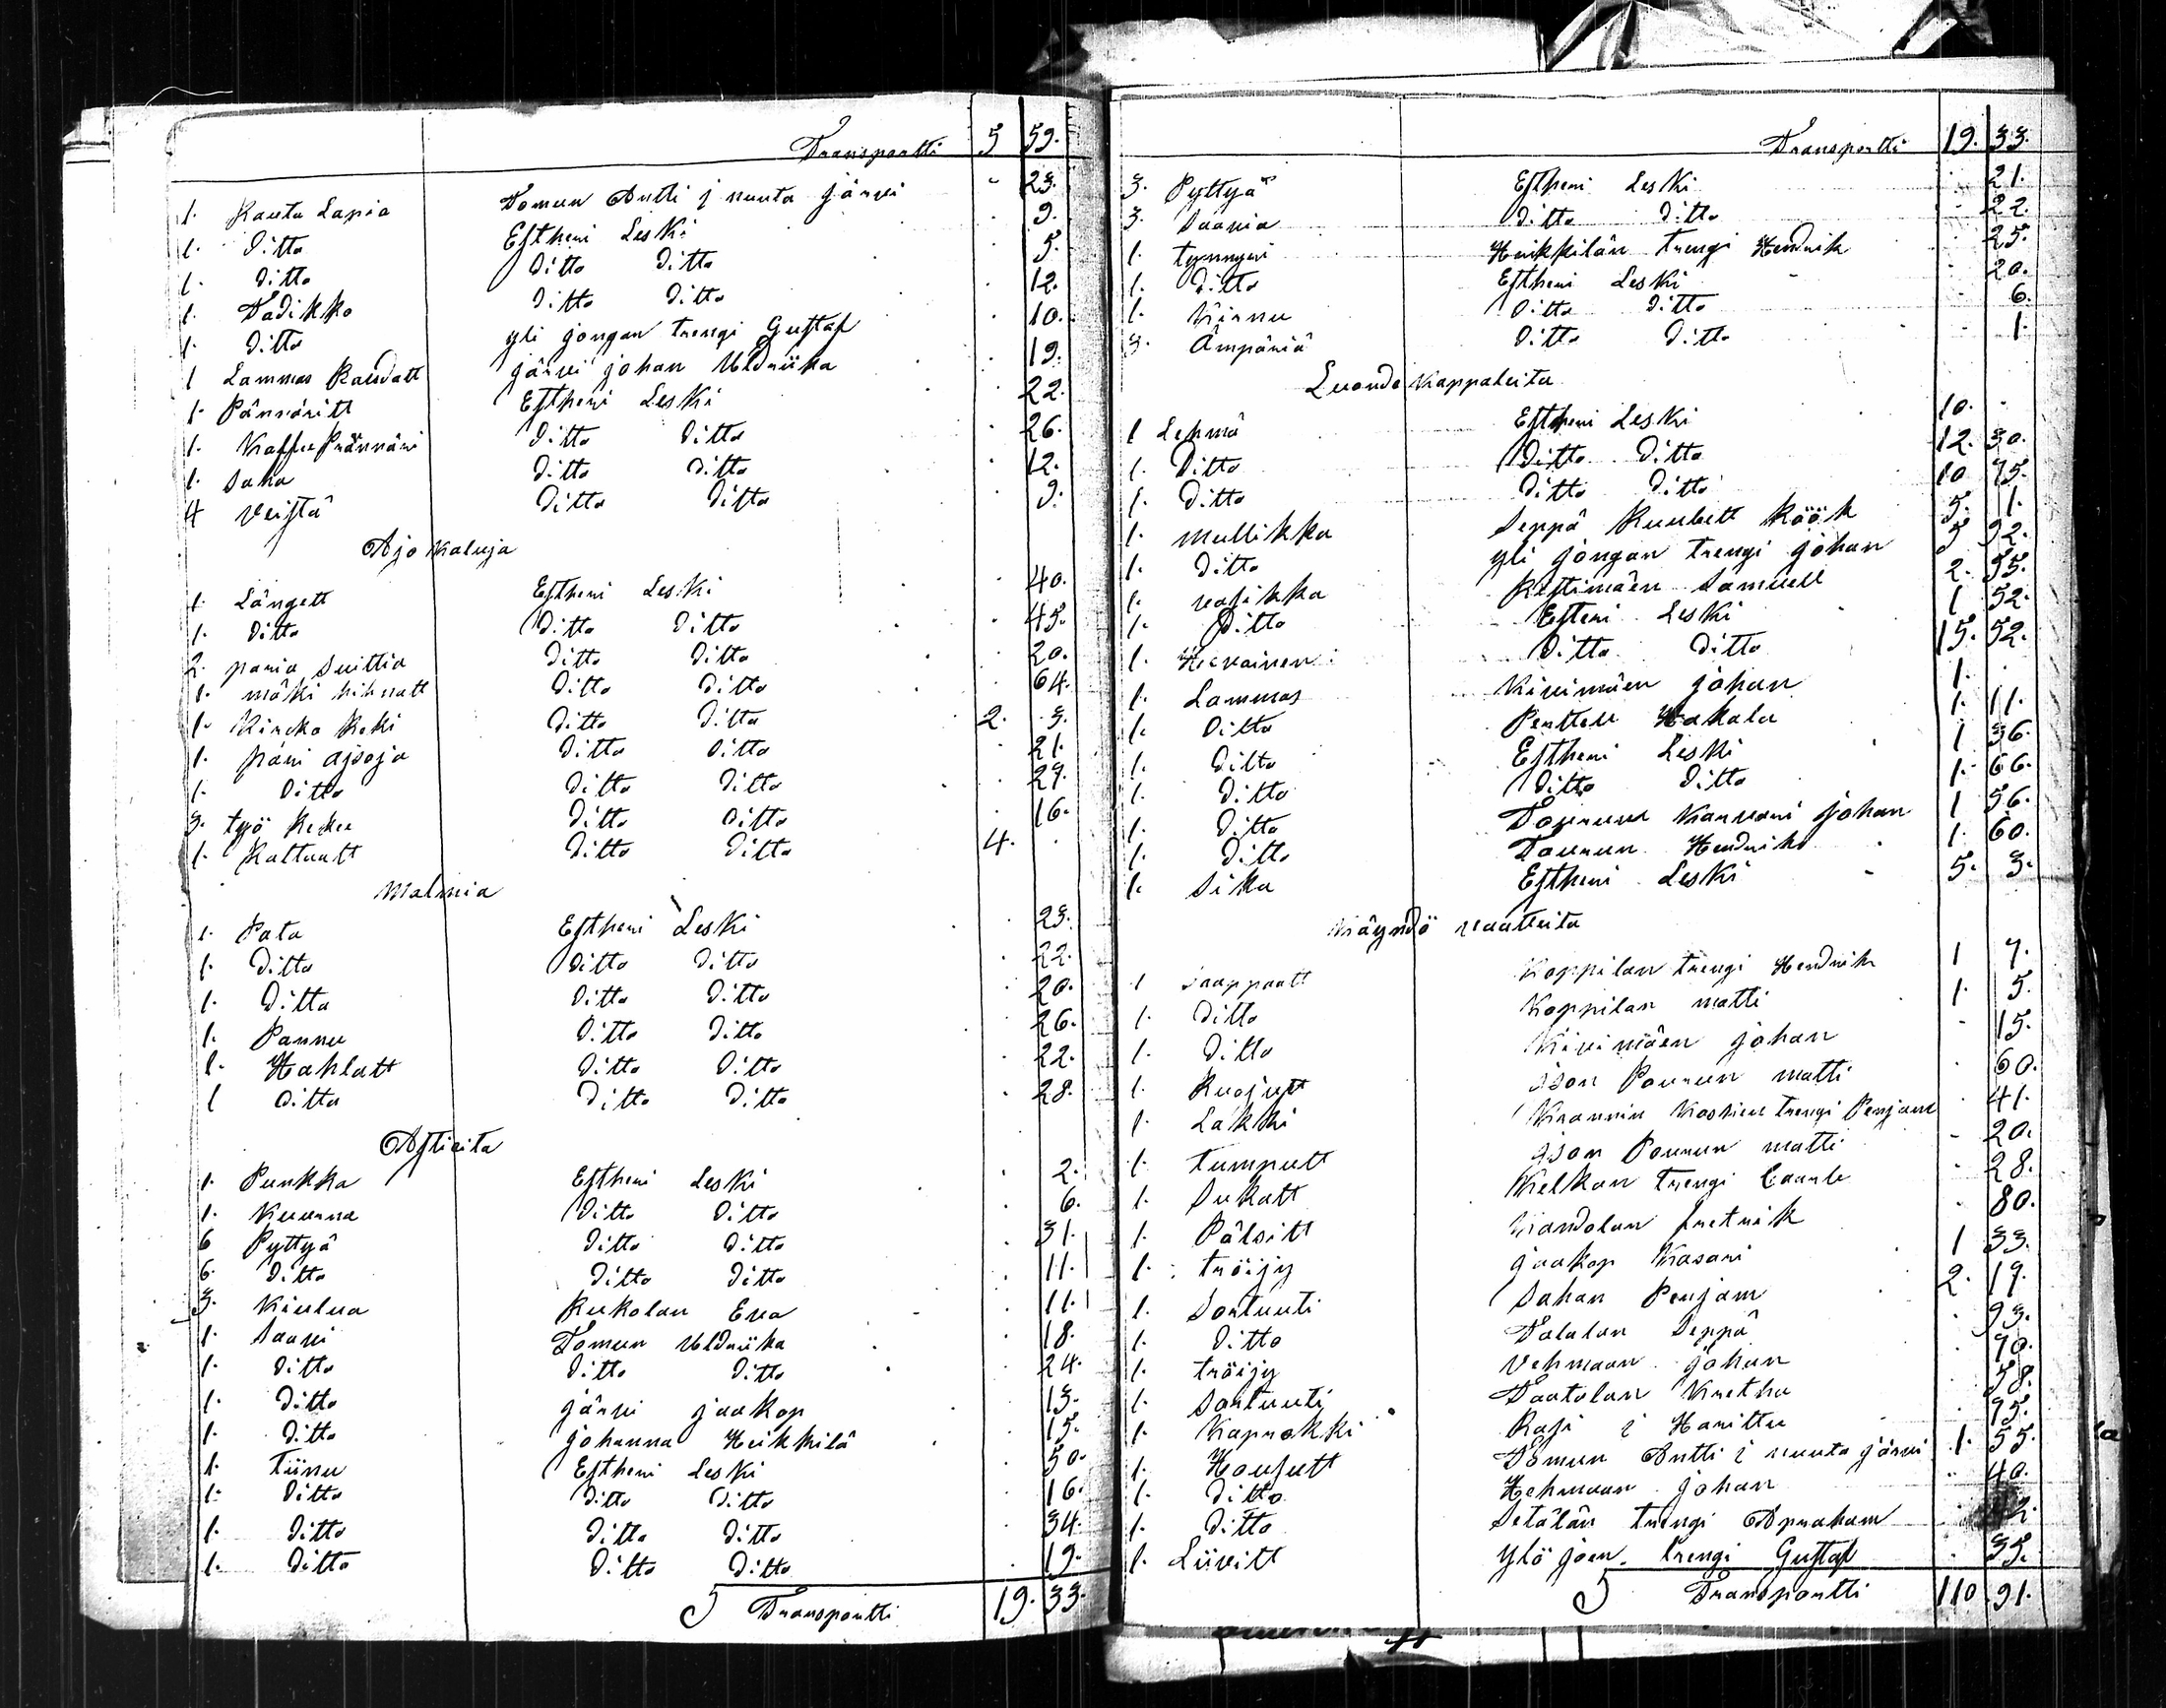 Transportti 5 59.
1. Rauta Lapia Tomun Antti j nuuta järvi - 23.
1. Ditto Estheni Leski . 9.
1. Ditto Ditto Ditto . 5.
1. Tadikko Ditto Ditto . 12.
1. Ditto yli jongan trengi Gustaf . 10.
1 Lammas Raudatt järvi johan Uldriika . 19.
1. Pännäritt Estheni Leski . 22.
1. Kaffee Prännäri Ditto Ditto . 26.
1. Saha Ditto Ditto . 12.
4 Veistä Ditto Ditto . 9.
Ajo Kaluja
1. Längett Estheni Leski . 40.
1. Ditto Ditto Ditto . 45.
2. paria Suittia Ditto Ditto . 20.
1. mäki hihnatt Ditto Ditto . 64.
1. Kircko Reki Ditto Ditto 2. 3.
1. pari ajsoja Ditto Ditto . 21.
1. Ditto Ditto Ditto . 27.
3. työ Rekee Ditto Ditto . 16.
1. Rattaatt Ditto Ditto 4. .
Malmia
1. Pata Estheni Leski . 23.
1. Ditto Ditto Ditto . 22.
1. Ditto Ditto Ditto . 20.
1. Pannu Ditto Ditto . 26.
1. Hahlatt Ditto Ditto . 22.
1 Ditto Ditto Ditto . 28.
Astioita
1. Punkka Estheni Leski . 2.
1. Kuurna Ditto Ditto . 6.
6 Pyttyä Ditto Ditto . 31.
6. Ditto Ditto Ditto . 11.
3. Kiulua Rukolan Eva . 11.
1. Saavi Tomun Uldriika . 18.
1. Ditto Ditto Ditto . 24.
1. Ditto järvi jaakop . 13.
1. Ditto johanna Heikkilä . 15.
1. Tiinu Estheni Leski . 50.
1. Ditto Ditto Ditto . 16.
1. Ditto Ditto Ditto . 34.
1. Ditto Ditto Ditto . 19.
Transportti 19. 33.
Transportti 19. 33.
3. Pyttyä Estheni Leski . 21.
3. Saavia Ditto Ditto . 22.
1. tynnyri Heikkilän trengi Hendrik . 25.
1. Ditto Estheni Leski . 20.
1. Kirnu Ditto Ditto . 6.
3. Ämpäriä Ditto Ditto . 1.
Luondo Kappaleita
1 Lehmä Estheni Leski 10. .
1. Ditto Ditto Ditto 12. 30.
1. Ditto Ditto Ditto 10 75.
1. mullikka Seppä Ruubett Köök 5. 1.
1. Ditto yli jongan trengi johan 5 92.
1. vasikka Ristimäen Samuell 2. 55.
1. Ditto Esteni Leski 1 52.
1. Hevoinen Ditto Ditto 15. 52.
1. Lammas Kivimäen johan 1. .
1. Ditto Penttek Hakala 1. 11.
1. Ditto Estheni Leski 1 36.
1. Ditto Ditto Ditto 1. 66.
1. Ditto johan 1 56.
1. Ditto Hendrik 1. 60.
1. Sika Estheni Leski 5. 3.
Käyndö vaatteita
1 Saappaatt Koppilan trengi Hendrik 1 7.
1. Ditto Koppilan matti 1. 5.
1. Ditto Kivimäen johan - 15.
1. ison matti . 60.
1. Lakki trengi Penjam . 41.
1. Tumputt ison matti - 20.
1. Sukatt trengi Caarle . 28.
1. Pälsitt Fretrik . 80.
1. tröijy jaakop Kasari 1 33.
1. Sortuuti Sahan Penjam 2. 17.
1. Ditto Talalan Seppä . 93.
1. tröijy Vehmaan johan . 70.
1. Sortuuti Taatolan Kretha . 58.
1. Kaprokki Rasi i Harittu . 75.
1. Housutt Tomun Antti i nuuta järvi 1. 55.
1. Ditto Hehmaan johan .. 40.
1. Ditto Setälän trengi Apraham
1. Liivitt ylö joen trengi Gustaf . 35.
Transportti 110 91.